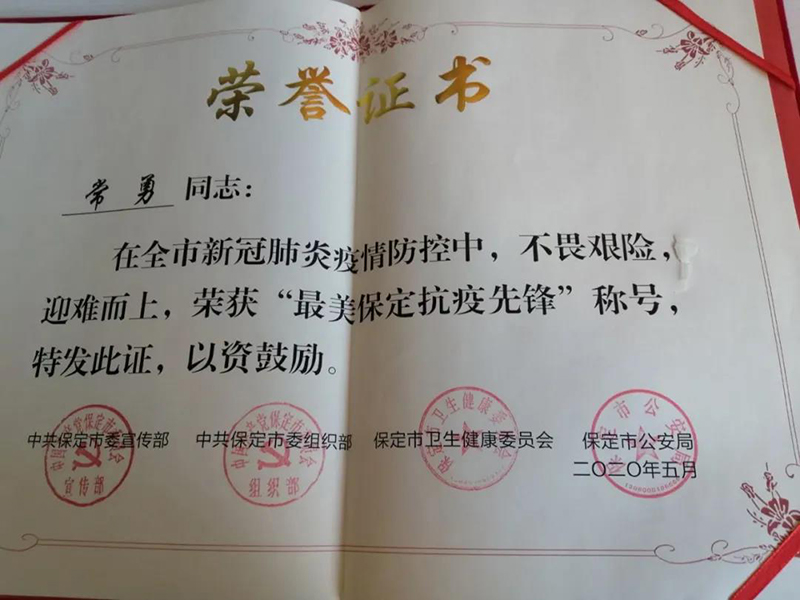 荣誉证书
常勇 同志：
在全市新冠肺炎疫情防控中，不畏艰险，
迎难而上，荣获“最美保定抗疫先锋”称号，
特发此证，以资鼓励。
中共保定市委宣传部 中共保定市委组织部 保定市卫生健康委员会 保定市公安局
二〇二〇年五月
中国共产党保定市委员会
宣传部
中国共产党保定市委员会
组织部
保定市卫生健康委员会
保定市公安局